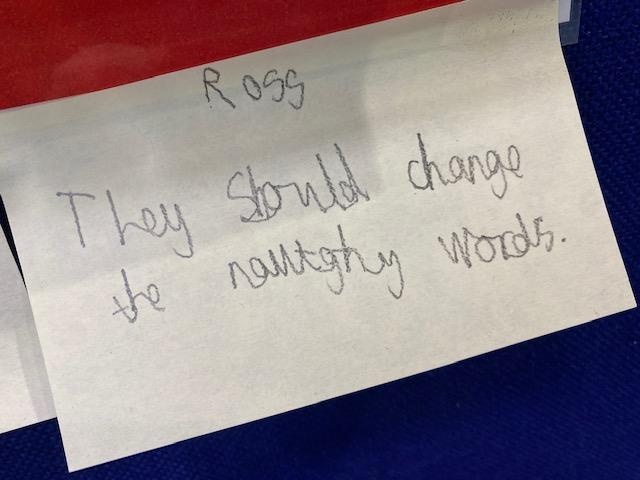 Ross
They Should change
the naulghty words.